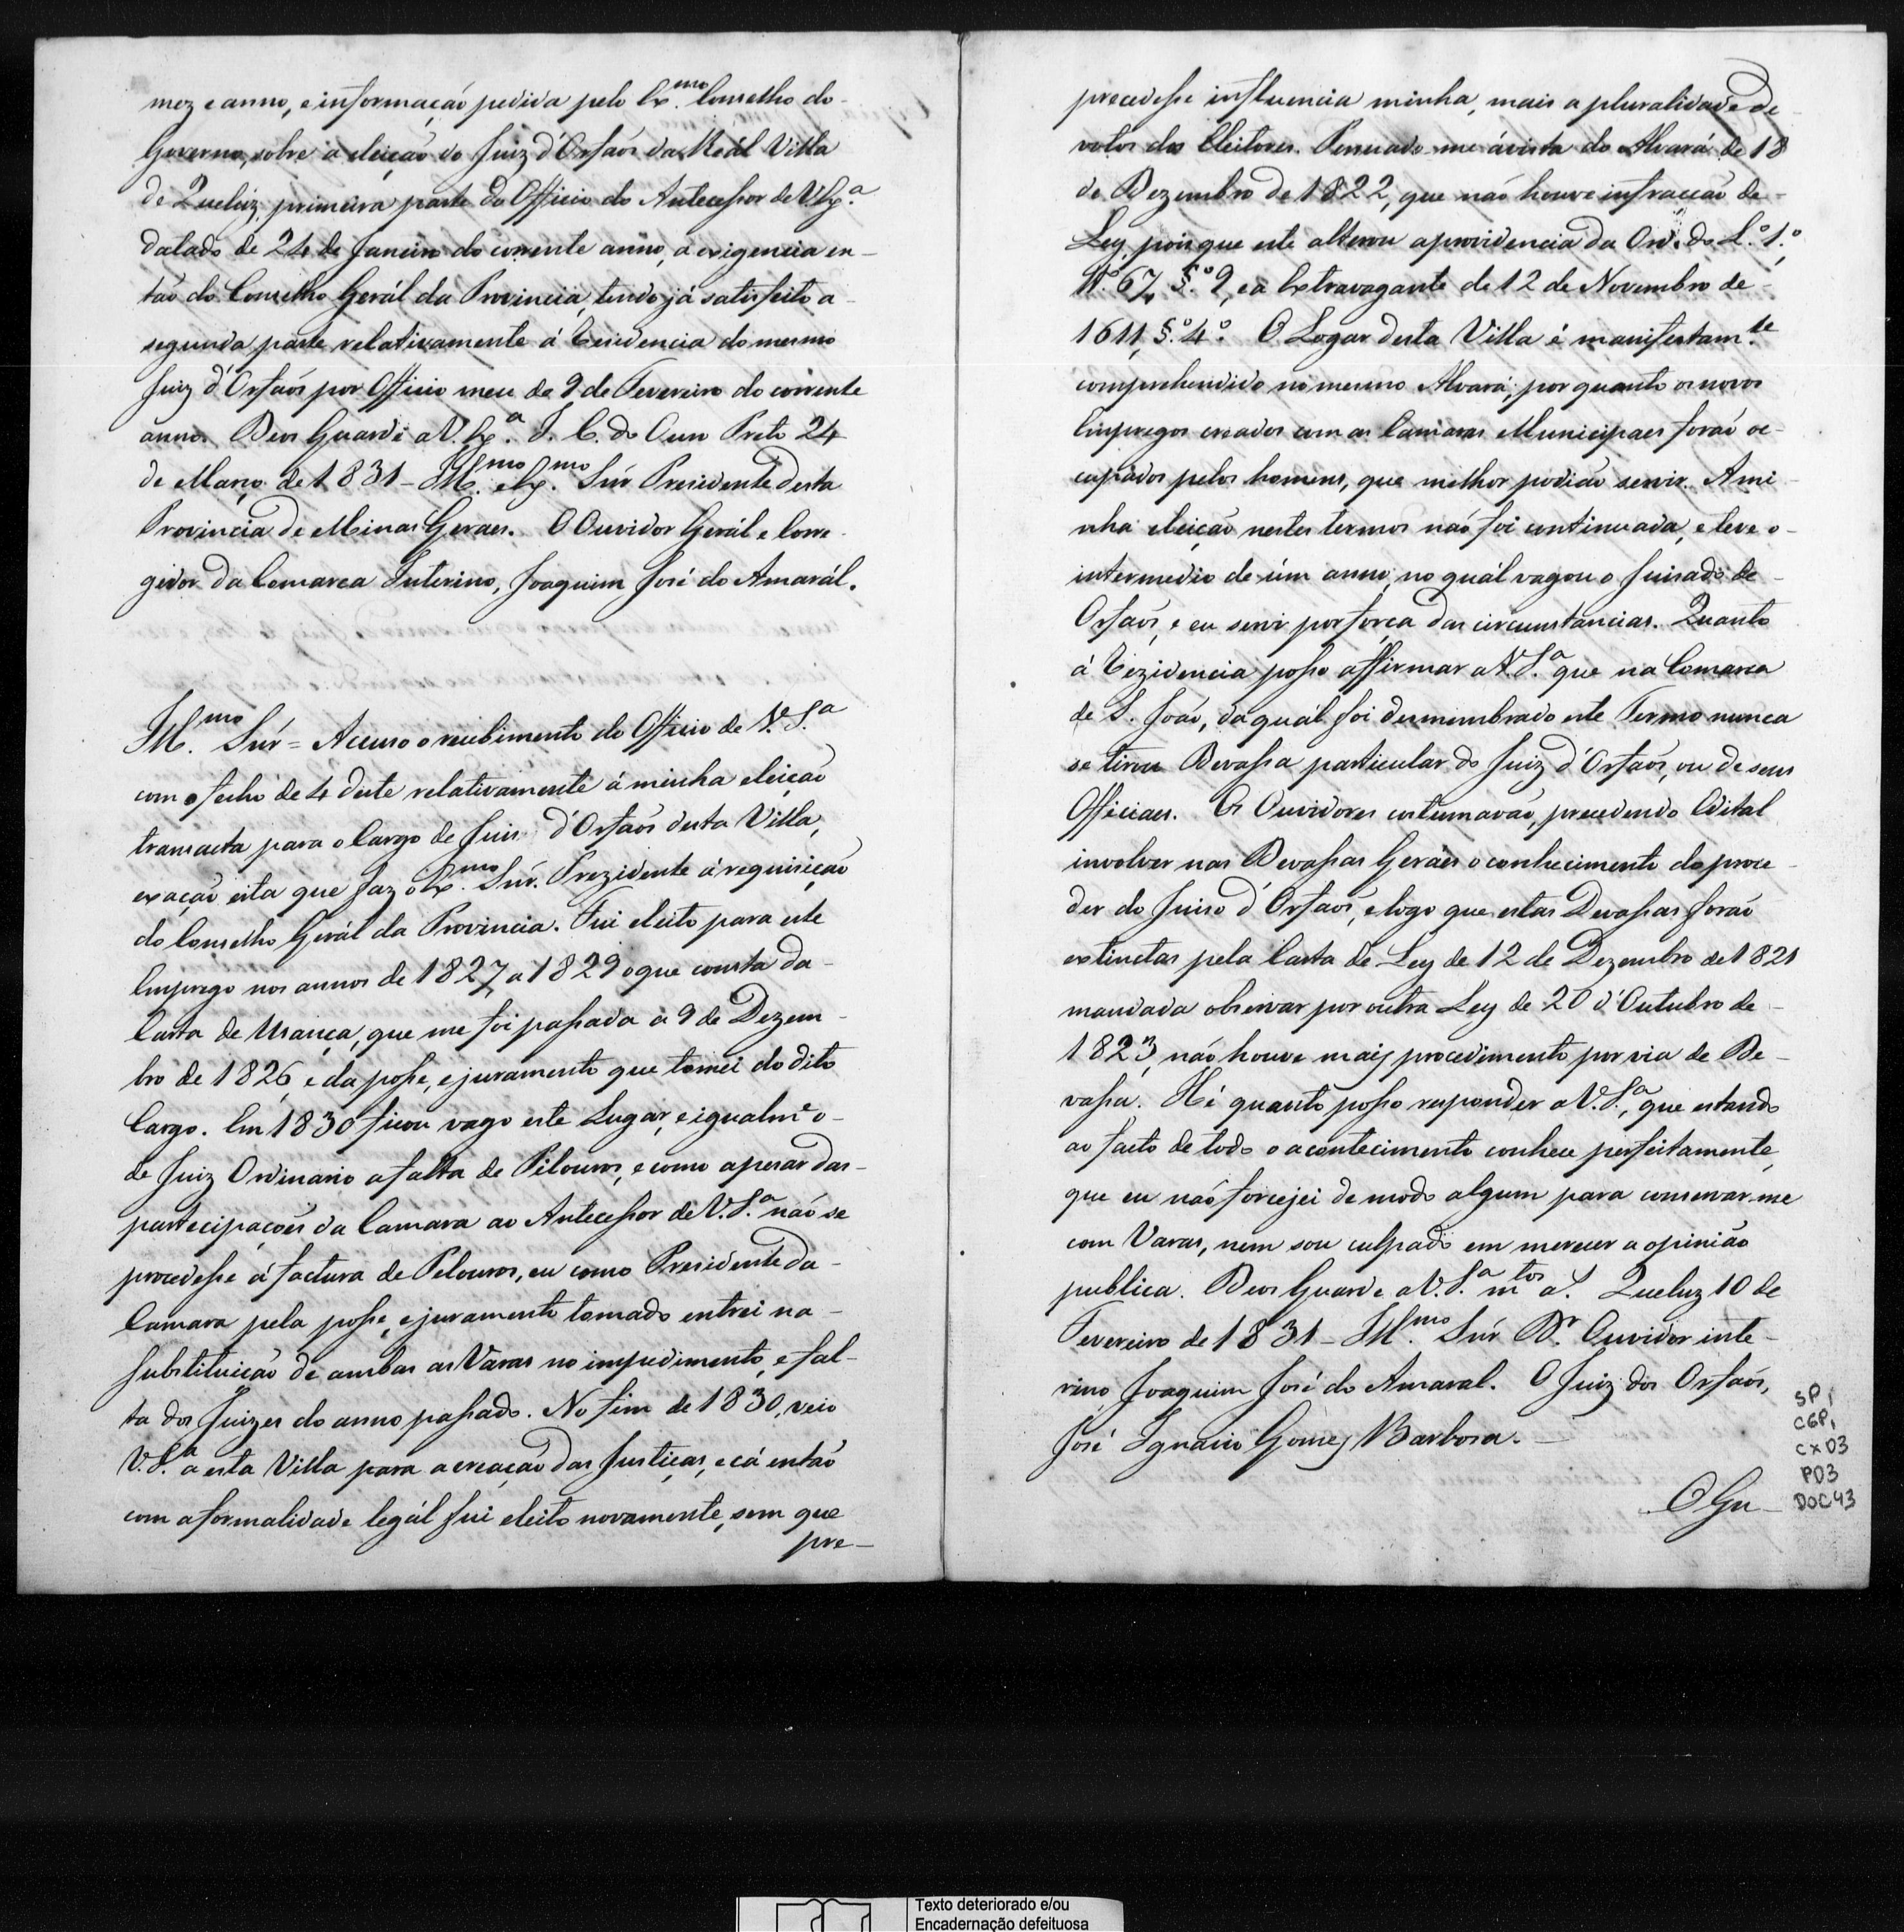 mez e anno, e informação pedida pelo Ex.mo Conselho do
Governo, sobre a eleição do Juiz d'Orfaõs da Reál Villa
de Queluz, primeira parte do Officio do Antecessor de V. Ex.a
datado de 24 de Janeiro do corrente anno, a exigencia en-
taõ do Conselho Gerál da Provincia, tendo já satisfeito a
segunda parte relativamente á Rezidencia do mesmo
Juiz d'Orfaõs por Officio meu de 9 de Fevereiro do corrente
anno. Deos Guarde a V. Ex.a I. C. do Ouro Preto 24
de Março de 1831 - Ill.mo e Ex.mo Snr Presidente desta
Provincia de Minas Geraes. O Ouvidor Gerál e Corre-
gidor da Comarca Interino, Joaquim José do Amarál.
Ill.mo Snr = Accuso o recebimento do Officio de V. S.a
com o fecho de 4 deste relativamente á minha eleiçaõ
transacta para o Cargo de Juis d'Orfaõs desta Villa,
exaçaõ esta que faz o Ex.mo Snr. Prezidente á requisiçaõ
do Conselho Gerál da Provincia. Fui eleito para este
Emprego nos annos de 1827, a 1829 o que consta da
Carta de Usança, que me foi passada a 9 de Dezem-
bro de 1826, e da posse, e juramento que tomei do dito
Cargo. Em 1830 ficou vago este Lugar, e igualm.e o
de Juiz Ordinario a falta de Pilouros, e como apesar das
partecipações da Camara ao Antecessor de V. S.a naõ se
procedesse á factura de Pelouros, eu como Presidente da
Camara pela posse, e juramento tomado entrei na
substituiçaõ de ambas as Varas no impedimento, e fal-
ta dos Juizes do anno passado. No fim de 1830, veio
V. S.a a esta Villa para a creaçaõ das Justiças, e cá entaõ
com a formalidade legál fui eleito novamente, sem que
pre-
precedesse influencia minha, mais a pluralidade de
votos dos Eleitores. Persuado-me á vista do Alvará de 18
de Dezembro de 1822, que naõ houve infracçaõ de
Ley, pois que este alterou a providencia da Ord. do L.º 1.º,
tt.º 67, §.º 9, e a Extravagante de 12 de Novembro de
1611, §.º 4.º O Logar desta Villa é manifestam.te
comprehendido no mesmo Alvará; por quanto os novos
Empregos creados com as Camaras Municipaes foraõ oc-
cupados pelos homens, que melhor podiaõ servir. A mi-
nha eleiçaõ nestes termos naõ foi continuada, e teve o
intermedio de úm anno, no quál vagou o Juisado de
Orfaõs, e eu servi por força das circumstancias. Quanto
á Rezidencia posso affirmar a V. S.a que na Comarca
de S. Joaõ, da quál foi desmembrado este Termo nunca
se tirou Devassa particular do Juiz d'Orfaõs, ou de seus
Officiaes. Os Ouvidores costumavaõ, precedendo Edital
involver nas Devassas Geráes o conhecimento do proce-
der do Juiso d'Orfaõs, e logo que estas Devassas foraõ
extinctas pela Carta de Ley de 12 de Dezembro de 1821
mandada observar por outra Ley de 20 d'Outubro de
1823, naõ houve mais procedimento por via de De-
vassa. Hé quanto posso responder a V. S.a, que estando
ao facto de todo o acontecimento conhece perfeitamente,
que eu naõ forcejei de modo algum para conservar-me
com Varas, nem sou culpado em merecer a opiniaõ
publica. Deos Guarde a V. S.a m.tos a.s Queluz 10 de
Fevereiro de 1831 - Ill.mo Snr D.r Ouvidor inte-
rino Joaquim José do Amaral. O Juiz dos Orfaõs,
José Ignacio Gomes Barbosa. -
O Gu-
SP1
CGP1
CX03
PD3
DOC43
Texto deteriorado e/ou
Encadernação defeituosa